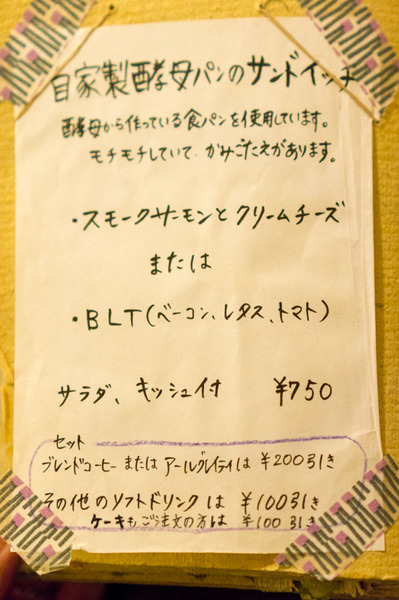 自家製酵母パンのサンドイッチ
酵母から作っている食パンを使用しています。
モチモチしていて、かみごたえがあります。
・スモークサーモンとクリームチーズ
または
・BLT(ベーコン、レタス、トマト)
サラダ、キッシュ付 ¥750
セット
ブレンドコーヒー または アールグレイティは ¥200引き
その他のソフトドリンクは ¥100引き
ケーキもご注文の方は ¥100引き